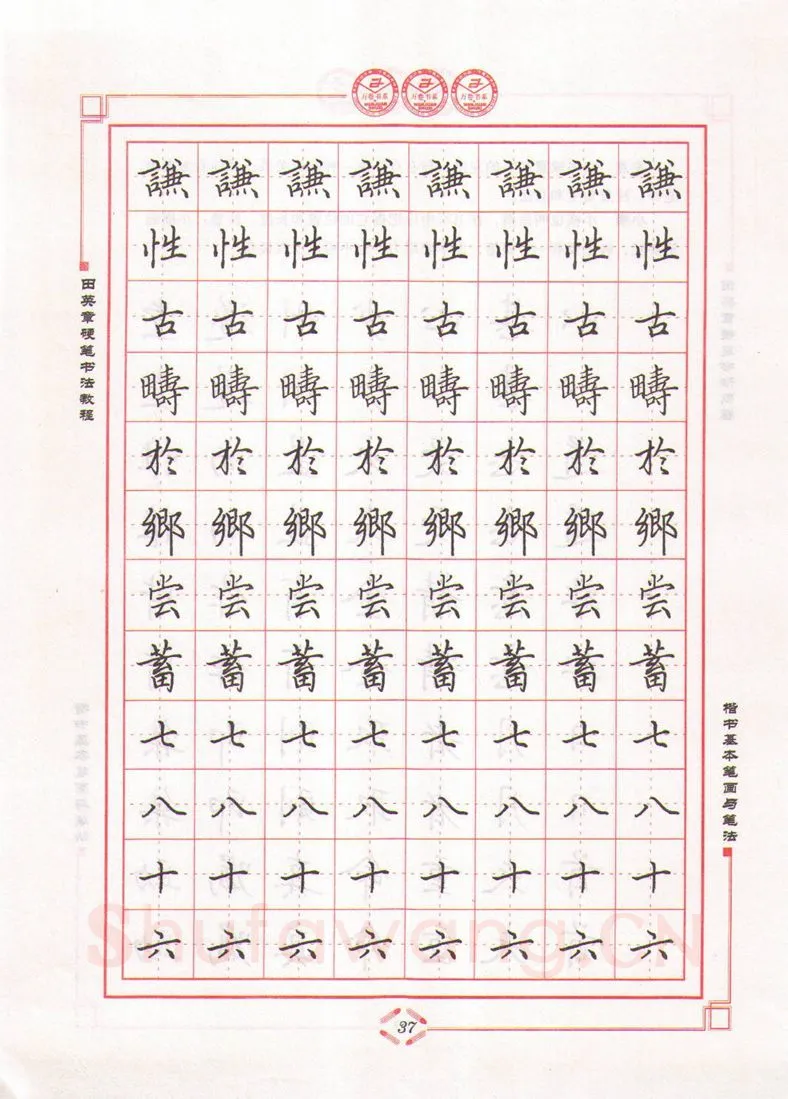 万卷书系 万卷书系 万卷书系
WANJUAN SHUXI WANJUAN SHUXI WANJUAN SHUXI
田英章硬笔书法教程
謙謙謙謙謙謙謙謙
性性性性性性性性
古古古古古古古古
疇疇疇疇疇疇疇疇
於於於於於於於於
鄉鄉鄉鄉鄉鄉鄉鄉
尝尝尝尝尝尝尝尝
蓄蓄蓄蓄蓄蓄蓄蓄
七七七七七七七七
八八八八八八八八
十十十十十十十十
六六六六六六六六
楷书基本笔画与笔法
Shufawang.CN
37